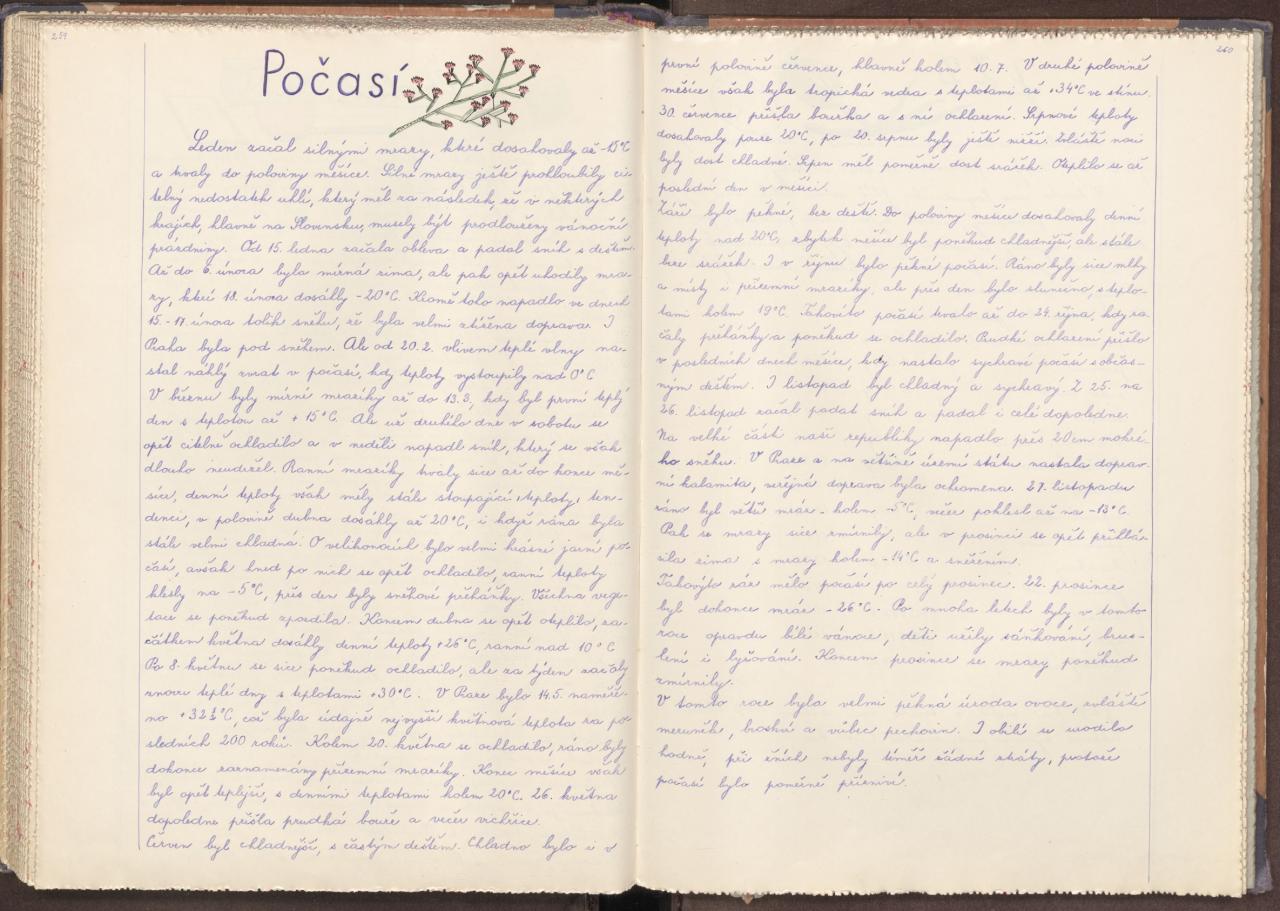 259
Počasí
Leden začal silnými mrazy, které dosahovaly až -15°C
a trvaly do poloviny měsíce. Silné mrazy ještě prohloubily ci-
telný nedostatek uhlí, který měl za následek, že v některých
krajích, hlavně na Slovensku, musely být prodlouženy vánoční
prázdniny. Od 15. ledna začala obleva a padal sníh s deštěm.
Až do 6. února byla mírná zima, ale pak opět uhodily mra-
zy, které 18. února dosáhly -20°C. Kromě toho napadlo ve dnech
15.-17. února tolik sněhu, že byla velmi ztížena doprava. I
Praha byla pod sněhem. Ale od 20.2. vlivem teplé vlny na-
stal náhlý zvrat v počasí, kdy teploty vystoupily nad 0°C
V březnu byly mírné mrazíky až do 13.3., kdy byl první teplý
den s teplotou až + 15°C. Ale už druhého dne v sobotu se
opět citelně ochladilo a v neděli napadl sníh, který se však
dlouho neudržel. Ranní mrazíky trvaly sice až do konce mě-
síce, denní teploty však měly stále stoupající teploty, ten-
denci, v polovině dubna dosáhly až 20°C, i když rána byla
stále velmi chladná. O velikonocích bylo velmi krásné jarní po-
časí, avšak hned po nich se opět ochladilo, ranní teploty
klesly na -5°C, přes den byly sněhové přeháňky. Všechna vege-
tace se poněkud zpozdila. Koncem dubna se opět oteplilo, za-
čátkem května dosáhly denní teploty +26°C, ranní nad 10°C
Po 8. květnu se sice poněkud ochladilo, ale za týden začaly
znovu teplé dny s teplotami +30°C. V Praze bylo 14.5. naměře-
no +32½°C, což byla údajně nejvyšší květnová teplota za po-
sledních 200 roků. Kolem 20. května se ochladilo, ráno byly
dokonce zaznamenány přízemní mrazíky. Konec měsíce však
byl opět teplejší, s denními teplotami kolem 20°C. 26. května
dopoledne přišla prudká bouře a večer vichřice.
Červen byl chladnější, s častým deštěm. Chladno bylo i v
260
první polovině července, hlavně kolem 10.7. V druhé polovině
měsíce však byla tropická vedra s teplotami až +34°C ve stínu.
30. července přišla bouřka a s ní ochlazení. Srpnové teploty
dosahovaly pouze 20°C, po 20. srpnu byly ještě nižší. Zvláště noci
byly dost chladné. Srpen měl poměrně dost srážek. Oteplilo se až
poslední den v měsíci.
Září bylo pěkné, bez deště. Do poloviny měsíce dosahovaly denní
teploty nad 20°C, zbytek měsíce byl poněkud chladnější, ale stále
beze srážek. I v říjnu bylo pěkné počasí. Ráno byly sice mlhy
a místy i přízemní mrazíky, ale přes den bylo slunečno, s teplo-
tami kolem 19°C. Takovéto počasí trvalo až do 24. října, kdy za-
čaly přeháňky a poněkud se ochladilo. Prudké ochlazení přišlo
v posledních dnech měsíce, kdy nastalo sychravé počasí s občas-
ným deštěm. I listopad byl chladný a sychravý. Z 25. na
26. listopad začal padat sníh a padal i celé dopoledne.
Na velké části naší republiky napadlo přes 20 cm mokré-
ho sněhu. V Praze a na většině území státu nastala doprav-
ní kalamita, veřejná doprava byla ochromena. 27. listopadu
ráno byl větší mráz - kolem -5°C, večer poklesl až na -13°C.
Pak se mrazy sice zmírnily, ale v prosinci se opět přihlá-
sila zima s mrazy kolem -14°C a sněžením.
Takovýto ráz mělo počasí po celý prosinec. 22. prosince
byl dokonce mráz -26°C. Po mnoha letech byly v tomto
roce opravdu bílé vánoce, děti užily sáňkování, brus-
lení i lyžování. Koncem prosince se mrazy poněkud
zmírnily.
V tomto roce byla velmi pěkná úroda ovoce, zvláště
meruněk, broskví a vůbec peckovin. I obilí se urodilo
hodně, při žních nebyly téměř žádné ztráty, protože
počasí bylo poměrně příznivé.